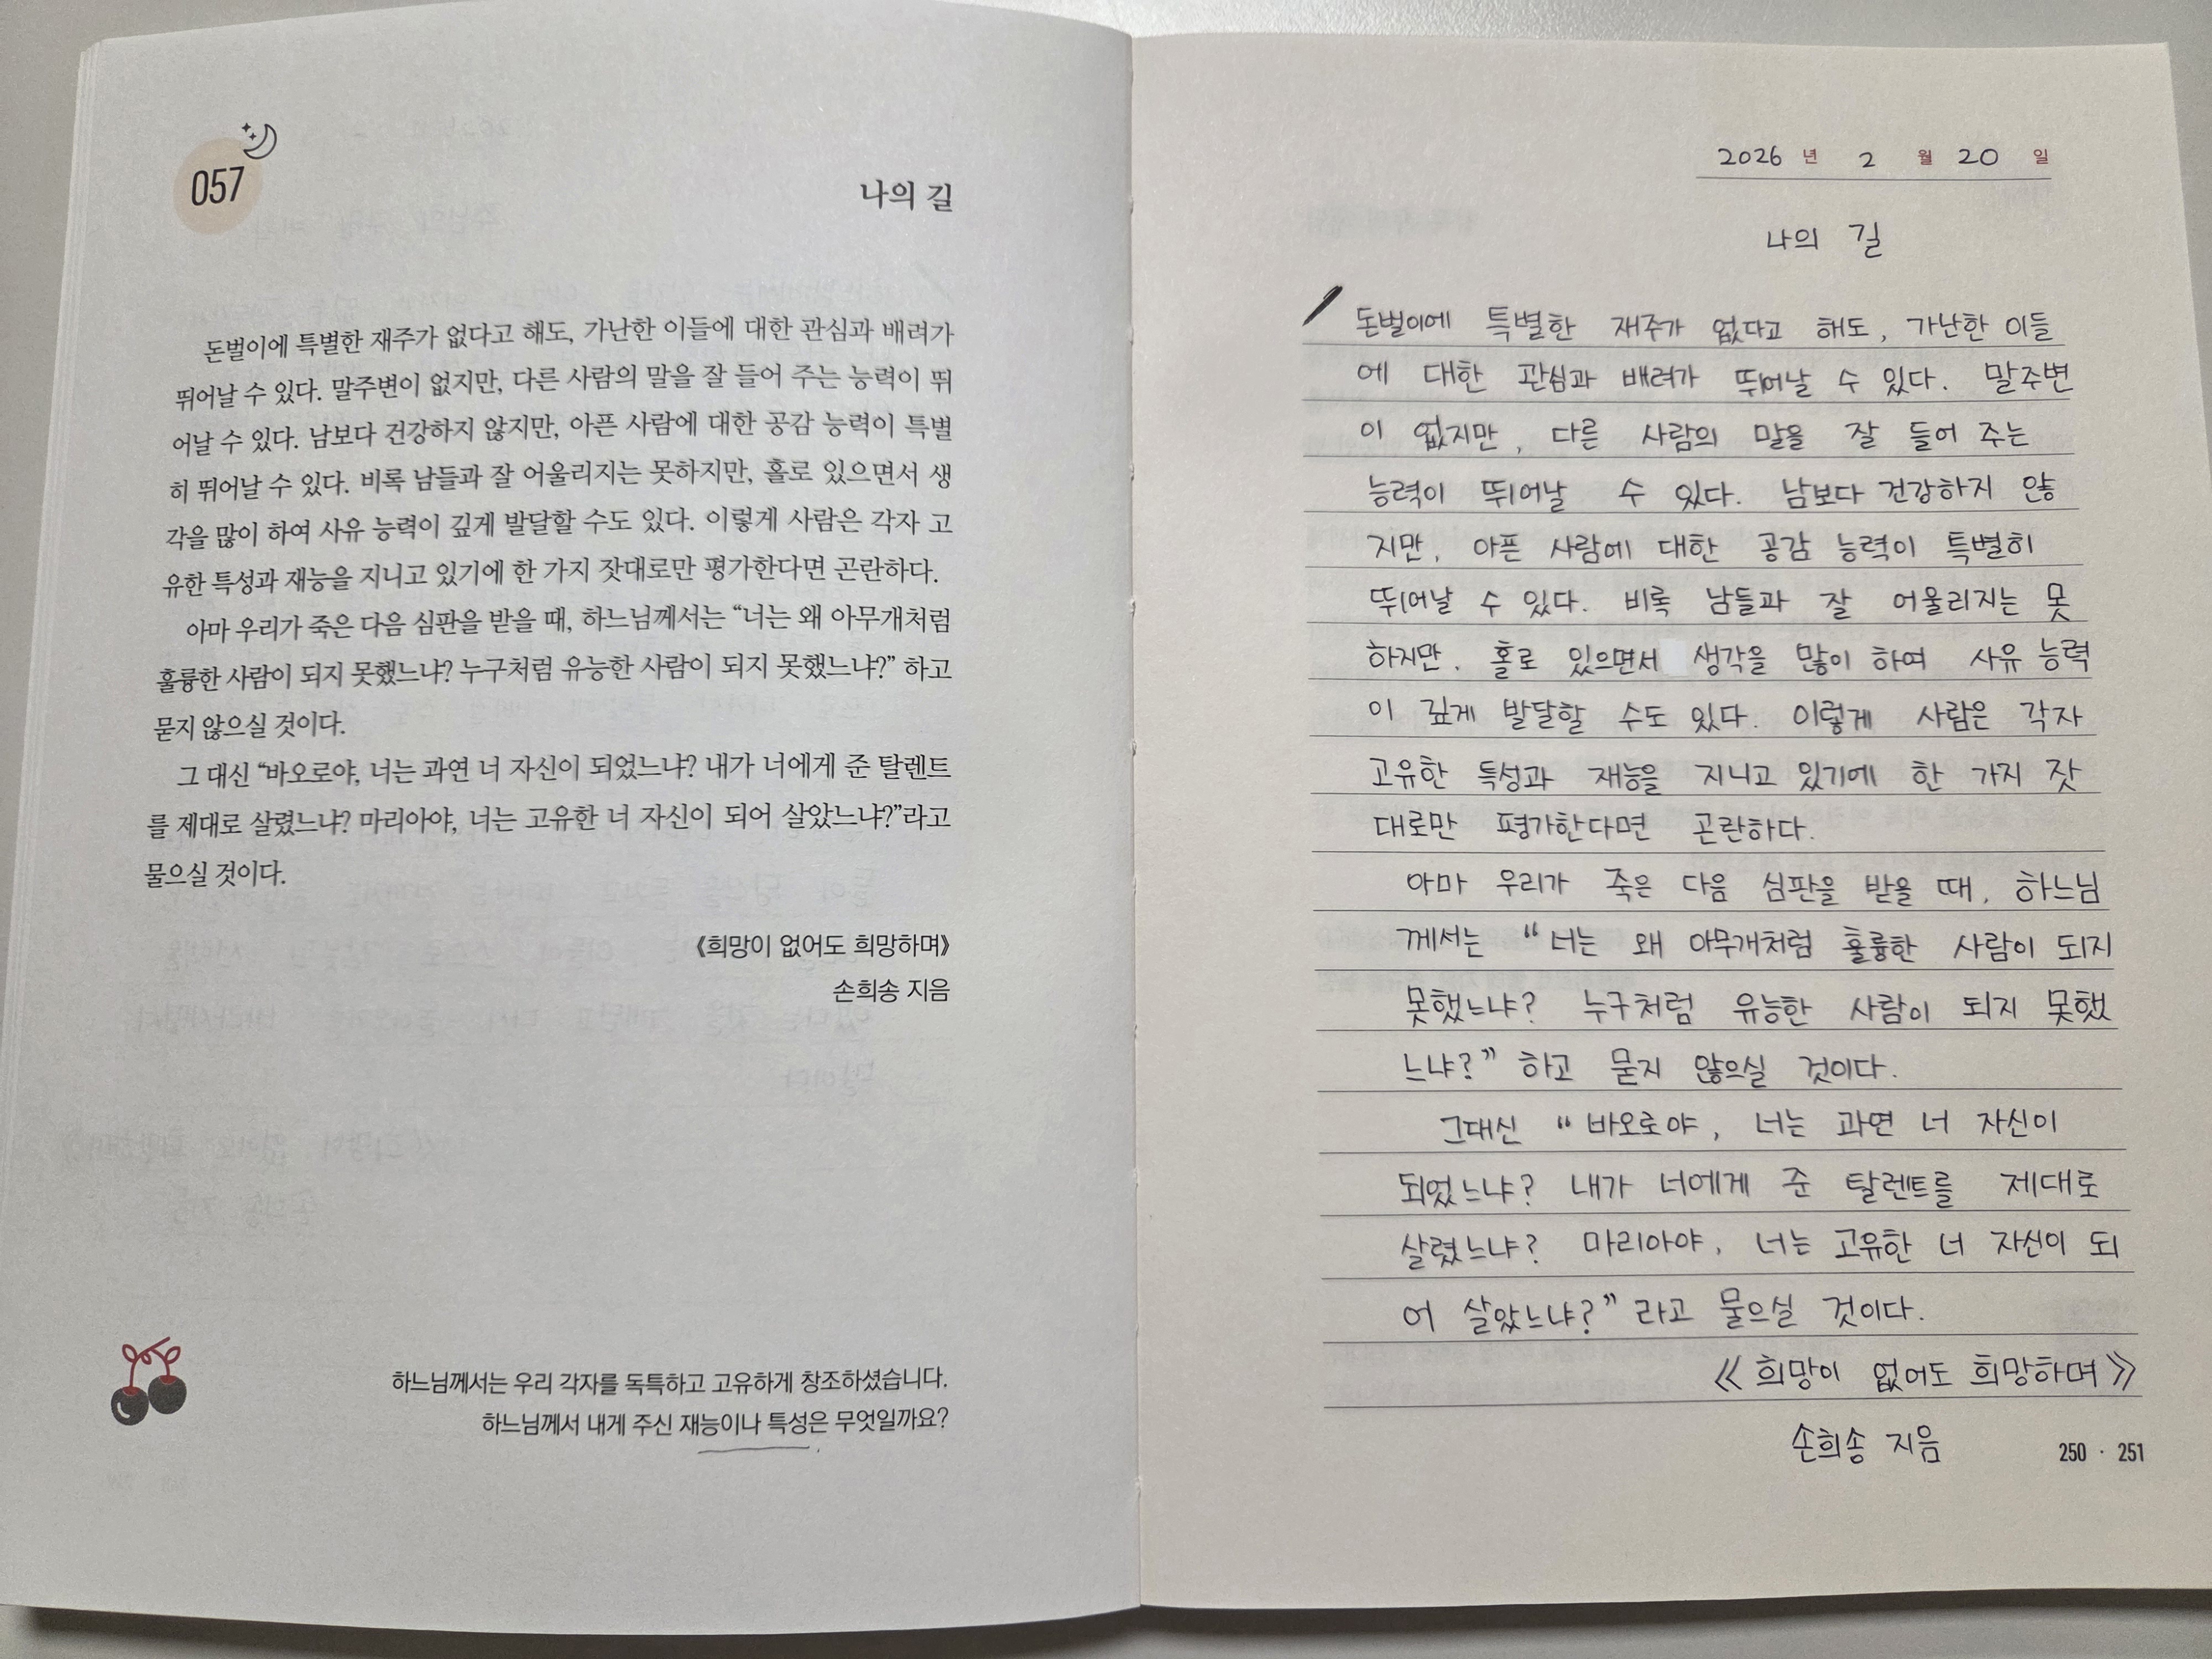 057
나의 길
돈벌이에 특별한 재주가 없다고 해도, 가난한 이들에 대한 관심과 배려가
뛰어날 수 있다. 말주변이 없지만, 다른 사람의 말을 잘 들어 주는 능력이 뛰
어날 수 있다. 남보다 건강하지 않지만, 아픈 사람에 대한 공감 능력이 특별
히 뛰어날 수 있다. 비록 남들과 잘 어울리지는 못하지만, 홀로 있으면서 생
각을 많이 하여 사유 능력이 깊게 발달할 수도 있다. 이렇게 사람은 각자 고
유한 특성과 재능을 지니고 있기에 한 가지 잣대로만 평가한다면 곤란하다.
아마 우리가 죽은 다음 심판을 받을 때, 하느님께서는 “너는 왜 아무개처럼
훌륭한 사람이 되지 못했느냐? 누구처럼 유능한 사람이 되지 못했느냐?” 하고
묻지 않으실 것이다.
그 대신 “바오로야, 너는 과연 너 자신이 되었느냐? 내가 너에게 준 탈렌트
를 제대로 살렸느냐? 마리아야, 너는 고유한 너 자신이 되어 살았느냐?”라고
물으실 것이다.
《희망이 없어도 희망하며》
손희송 지음
하느님께서는 우리 각자를 독특하고 고유하게 창조하셨습니다.
하느님께서 내게 주신 재능이나 특성은 무엇일까요?
2026 년 2 월 20 일
나의 길
돈벌이에 특별한 재주가 없다고 해도, 가난한 이들
에 대한 관심과 배려가 뛰어날 수 있다. 말주변
이 없지만, 다른 사람의 말을 잘 들어 주는
능력이 뛰어날 수 있다. 남보다 건강하지 않
지만, 아픈 사람에 대한 공감 능력이 특별히
뛰어날 수 있다. 비록 남들과 잘 어울리지는 못
하지만, 홀로 있으면서 생각을 많이 하여 사유 능력
이 깊게 발달할 수도 있다. 이렇게 사람은 각자
고유한 특성과 재능을 지니고 있기에 한 가지 잣
대로만 평가한다면 곤란하다.
아마 우리가 죽은 다음 심판을 받을 때, 하느님
께서는 “너는 왜 아무개처럼 훌륭한 사람이 되지
못했느냐? 누구처럼 유능한 사람이 되지 못했
느냐?” 하고 묻지 않으실 것이다.
그대신 “바오로야, 너는 과연 너 자신이
되었느냐? 내가 너에게 준 탈렌트를 제대로
살렸느냐? 마리아야, 너는 고유한 너 자신이 되
어 살았느냐?” 라고 물으실 것이다.
《희망이 없어도 희망하며》
손희송 지음
250 · 251